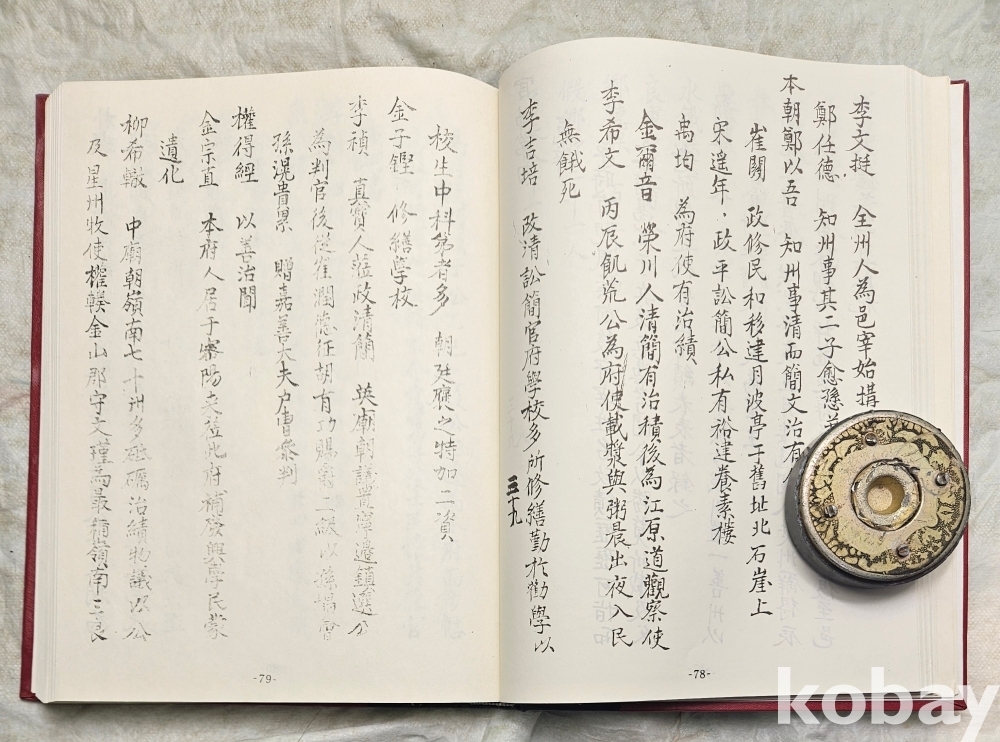 李文挺 全州人為邑宰始搆
鄭任德 知州事其二子愈孫並
本朝鄭以吾 知州事清而簡文治有
崔關 政修民和移建月波亭于舊址北石崖上
宋遥年 政平訟簡公私有裕建養素樓
禹均 為府使有治績
金爾音 榮川人清簡有治積後為江原道觀察使
李希文 丙辰飢荒公為府使載漿與粥晨出夜入民
無餓死
李吉培 政清訟簡官府學校多所修繕勤於勸學以
三十九
-78-
校生中科第者多 朝廷褒之特加二資
金子鏗 修繕學校
李禎 真寶人蒞政清簡 英廟朝議置寧邊鎮選公
為判官後從崔潤德征胡有功賜爵二級以孫堨曾
孫滉貴累 贈嘉善大夫户曹參判
權得經 以善治聞
金宗直 本府人居于密陽夫莅此府補廢興學民蒙
遺化
柳希轍 中廟朝嶺南七十州多砥礪治績物議以公
及星州牧使權輳金山郡守文瑾為最稱嶺南三良
-79-
kobay